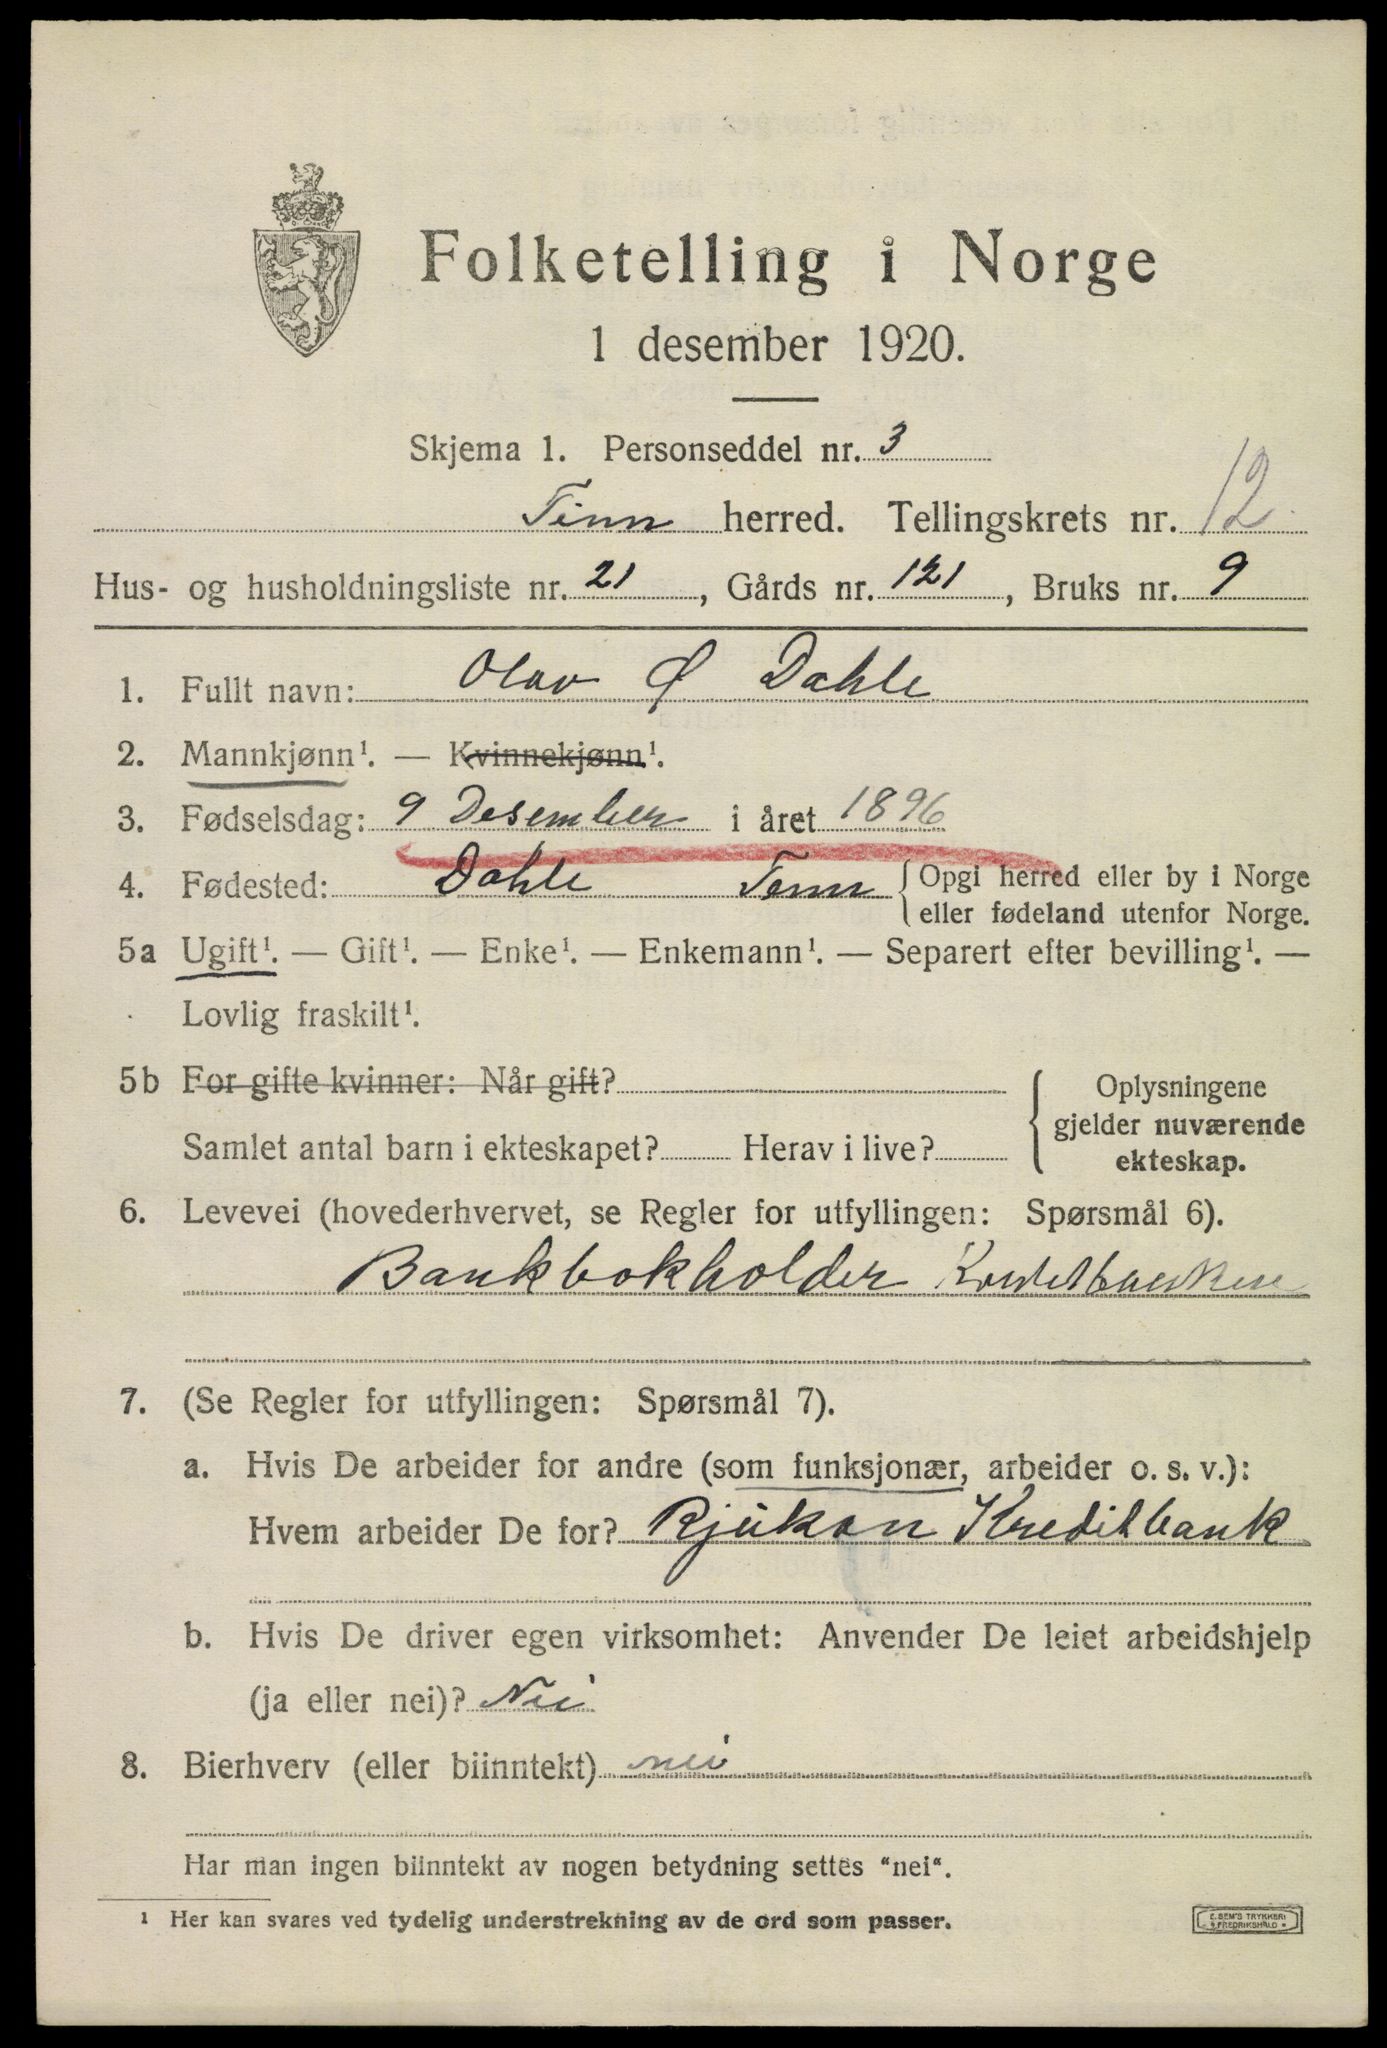 Folketelling i Norge
1 desember 1920.
Skjema 1. Personseddel nr. 3
Tinn herred. Tellingskrets nr. 12
Hus- og husholdningsliste nr. 21, Gårds nr. 121, Bruks nr. 9
1. Fullt navn: Olav Ø Dahle
2. Mannkjønn¹. — Kvinnekjønn¹.
3. Fødselsdag: 9 Desember i året 1896
4. Fødested: Dahle Tinn { Opgi herred eller by i Norge
eller fødeland utenfor Norge.
5a Ugift¹. — Gift¹. — Enke¹. — Enkemann¹. — Separert efter bevilling¹. —
Lovlig fraskilt¹.
5b For gifte kvinner: Når gift?
Samlet antal barn i ekteskapet? Herav i live?
{ Oplysningene
gjelder nuværende
ekteskap.
6. Levevei (hovederhvervet, se Regler for utfyllingen: Spørsmål 6).
Bankbokholder
7. (Se Regler for utfyllingen: Spørsmål 7).
a. Hvis De arbeider for andre (som funksjonær, arbeider o. s. v.):
Hvem arbeider De for? Rjukan Kreditbank
b. Hvis De driver egen virksomhet: Anvender De leiet arbeidshjelp
(ja eller nei)? Nei
8. Bierhverv (eller biinntekt) nei
Har man ingen biinntekt av nogen betydning settes "nei".
¹ Her kan svares ved tydelig understrekning av de ord som passer.
E. SEM'S TRYKKERI
FREDRIKSHALD